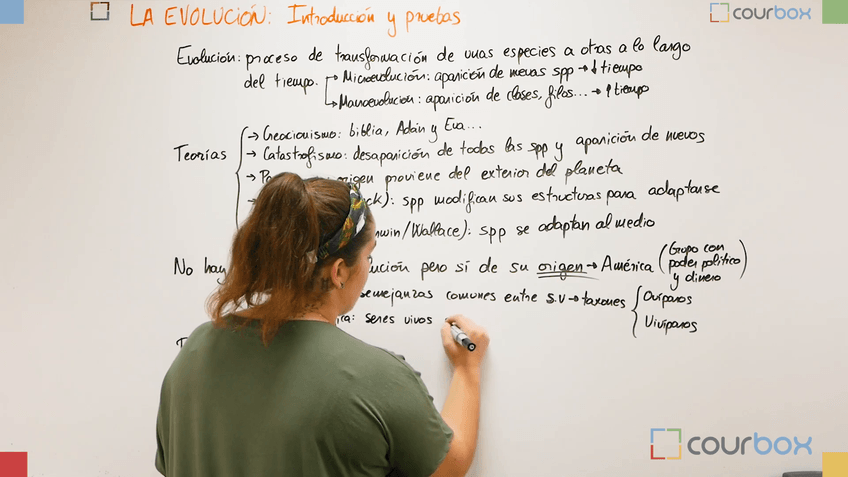 LA EVOLUCIÓN: Introducción y pruebas
courbox
Evolución: proceso de transformación de unas especies a otras a lo largo
del tiempo.
→ Microevolución: aparición de nuevas spp → ↓ tiempo
→ Macroevolución: aparición de clases, filos... → ↑ tiempo
Teorías
→ Creacionismo: biblia, Adán y Eva...
→ Catastrofismo: desaparición de todas las spp y aparición de nuevos
→ origen proviene del exterior del planeta
ck): spp modifican sus estructuras para adaptarse
rwin/Wallace): spp se adaptan al medio
No hay lución pero sí de su origen → América (Grupo con poder político y dinero)
semejanzas comunes entre s.v → taxones { Ovíparos
Vivíparos
ica: seres vivos
courbox